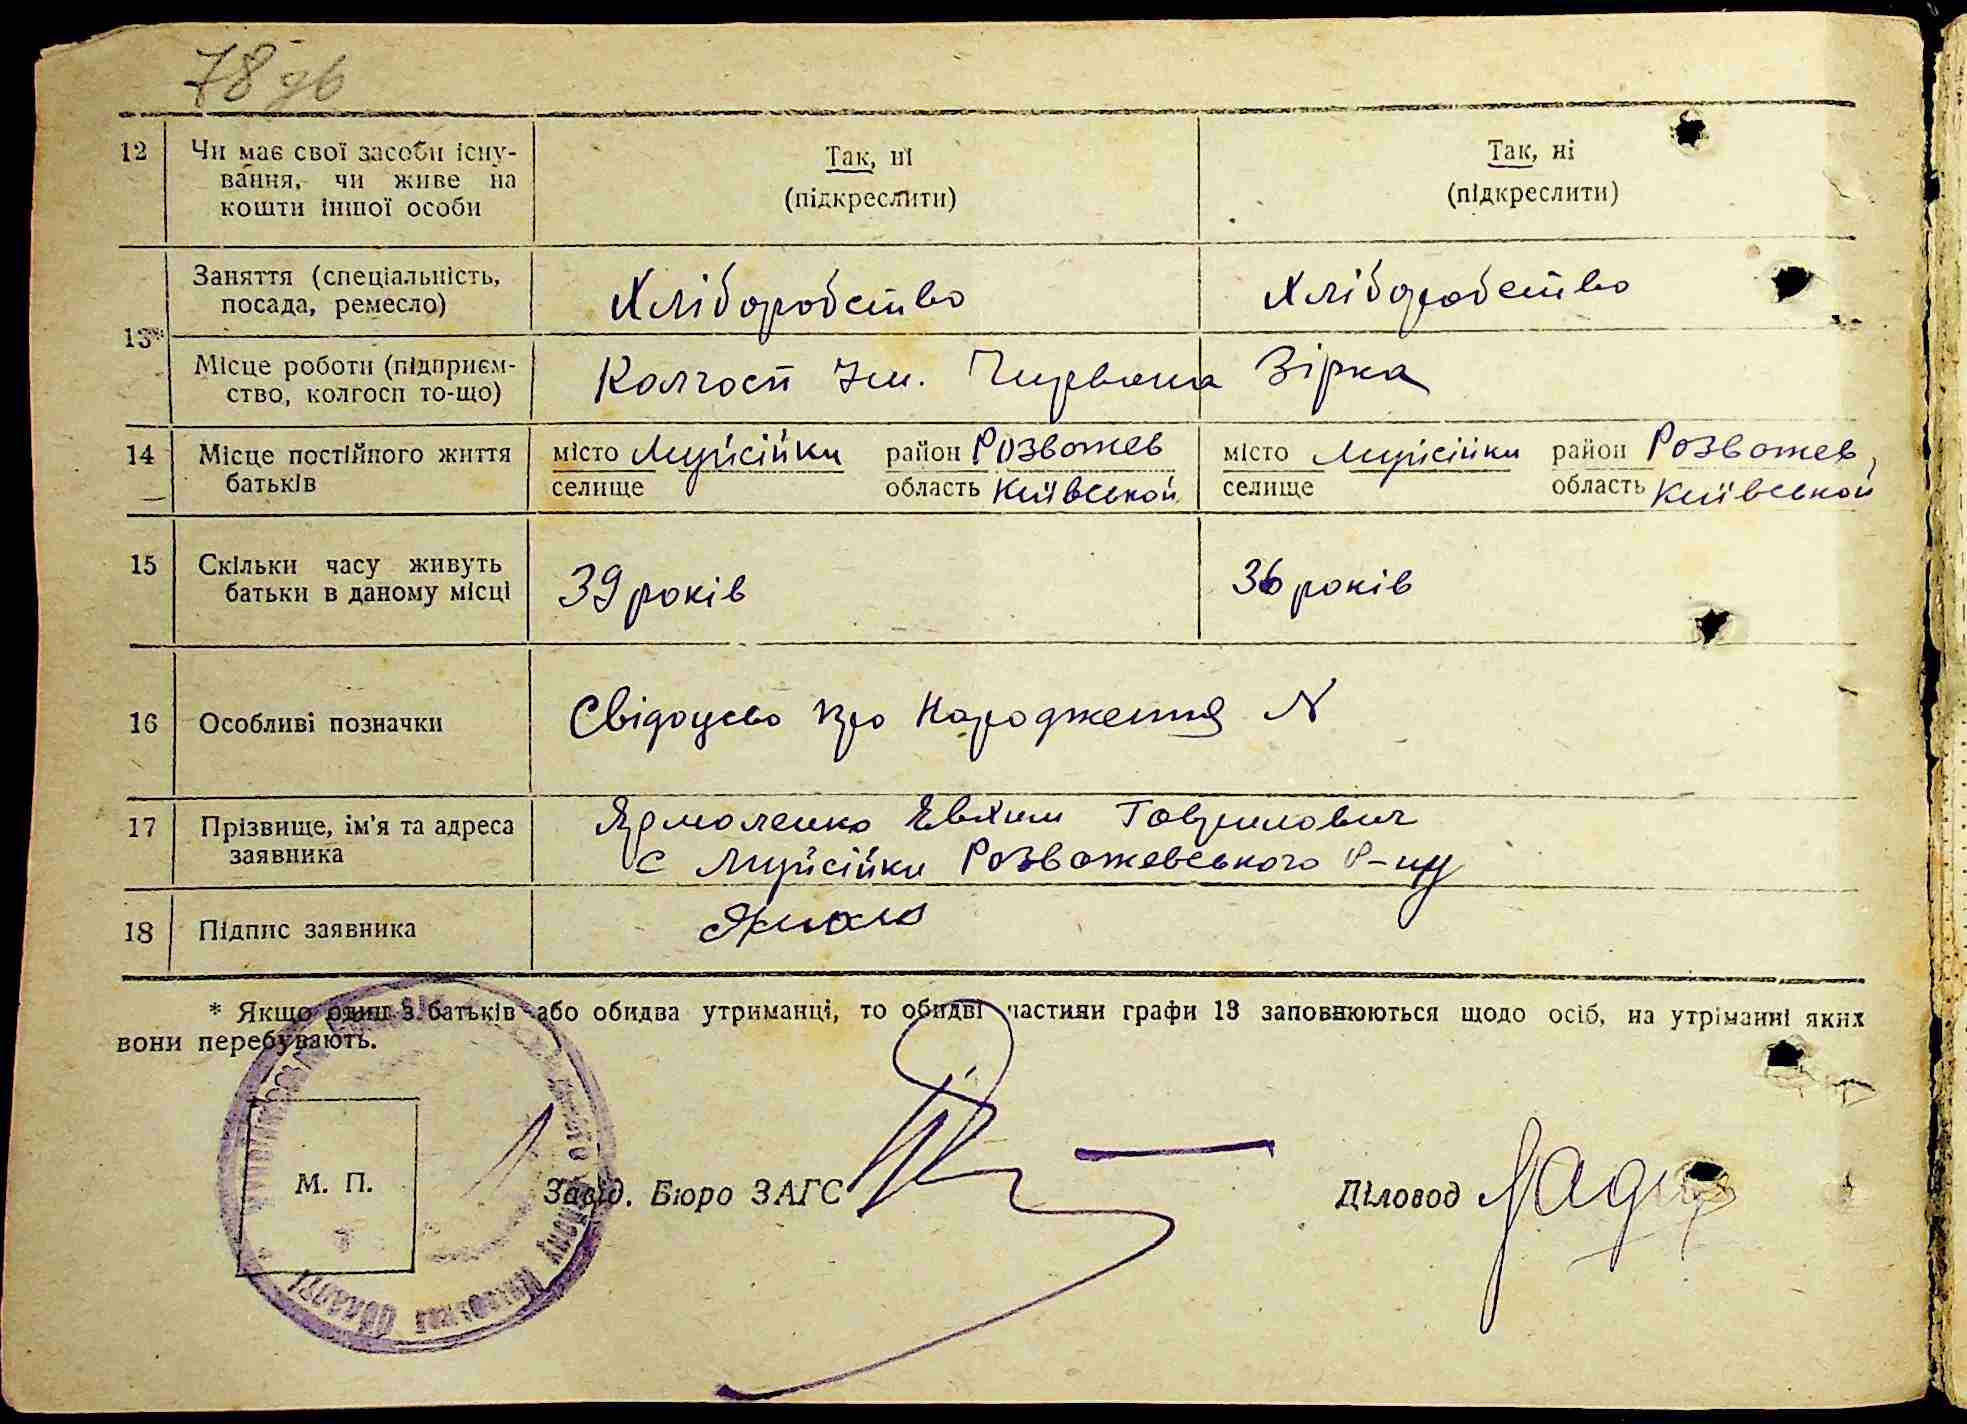 78 зв
12 Чи має свої засоби існу- Так, ні Так, ні
вання, чи живе на (підкреслити) (підкреслити)
кошти іншої особи
13* Заняття (спеціальність, Хліборобство Хліборобство
посада, ремесло)
Місце роботи (підприєм- Колгосп Ім. Червона Зірка
ство, колгосп то-що)
14 Місце постійного життя місто Мусійки район Розважев місто Мусійки район Розважев,
батьків селище область Київської селище область Київської
15 Скільки часу живуть 39 років 36 років
батьки в даному місці
16 Особливі позначки Свідоцво про Народження N
17 Прізвище, ім'я та адреса Ярмоленко Евхим Гаврилович
заявника с Мусійки Розважевського Р-ну
18 Підпис заявника
* Якщо один з батьків або обидва утриманці, то обидві частини графи 13 заповнюються щодо осіб, на утріманні яких
вони перебувають.
М. П.
Завід. Бюро ЗАГС Діловод